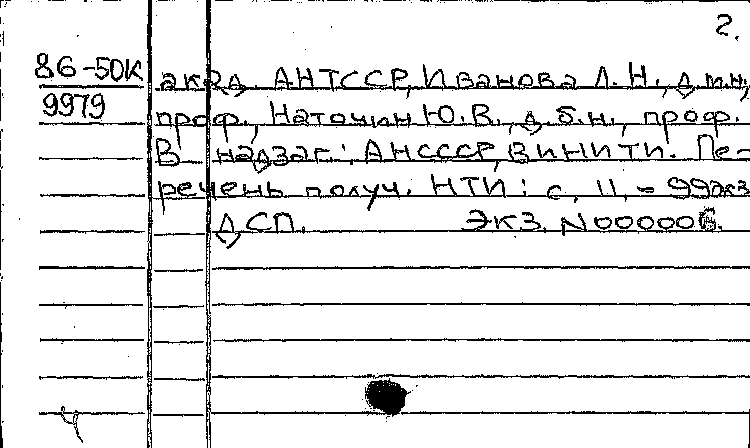 2.
86-50К
9979
акад. АНТССР, Иванова Л.Н., д.м.н.,
проф., Наточин Ю.В., д.б.н., проф.
В надзаг.: АНСССР, ВИНИТИ. Пе-
речень получ. НТИ: с. 11. - 99экз
ДСП. Экз. N000006.
Ч